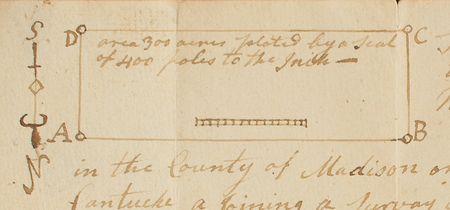 S
D C
area 300 acres ploted by a Scal
of 400 poles to the Inch
A B
N
in the County of Madison on
Cantucke a Joining a Survay